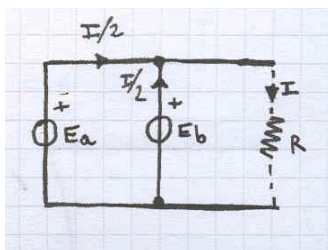 I/2
I/2
I
+
Ea
+
Eb
R